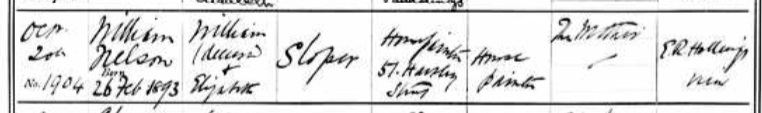 Octr
20th
No. 1904
William
Nelson
Born
26 Feb 1893
William
(deceased)
+
Elizabeth
Sloper
51
Street
House
Painter
The Mother
E.R. Hollings